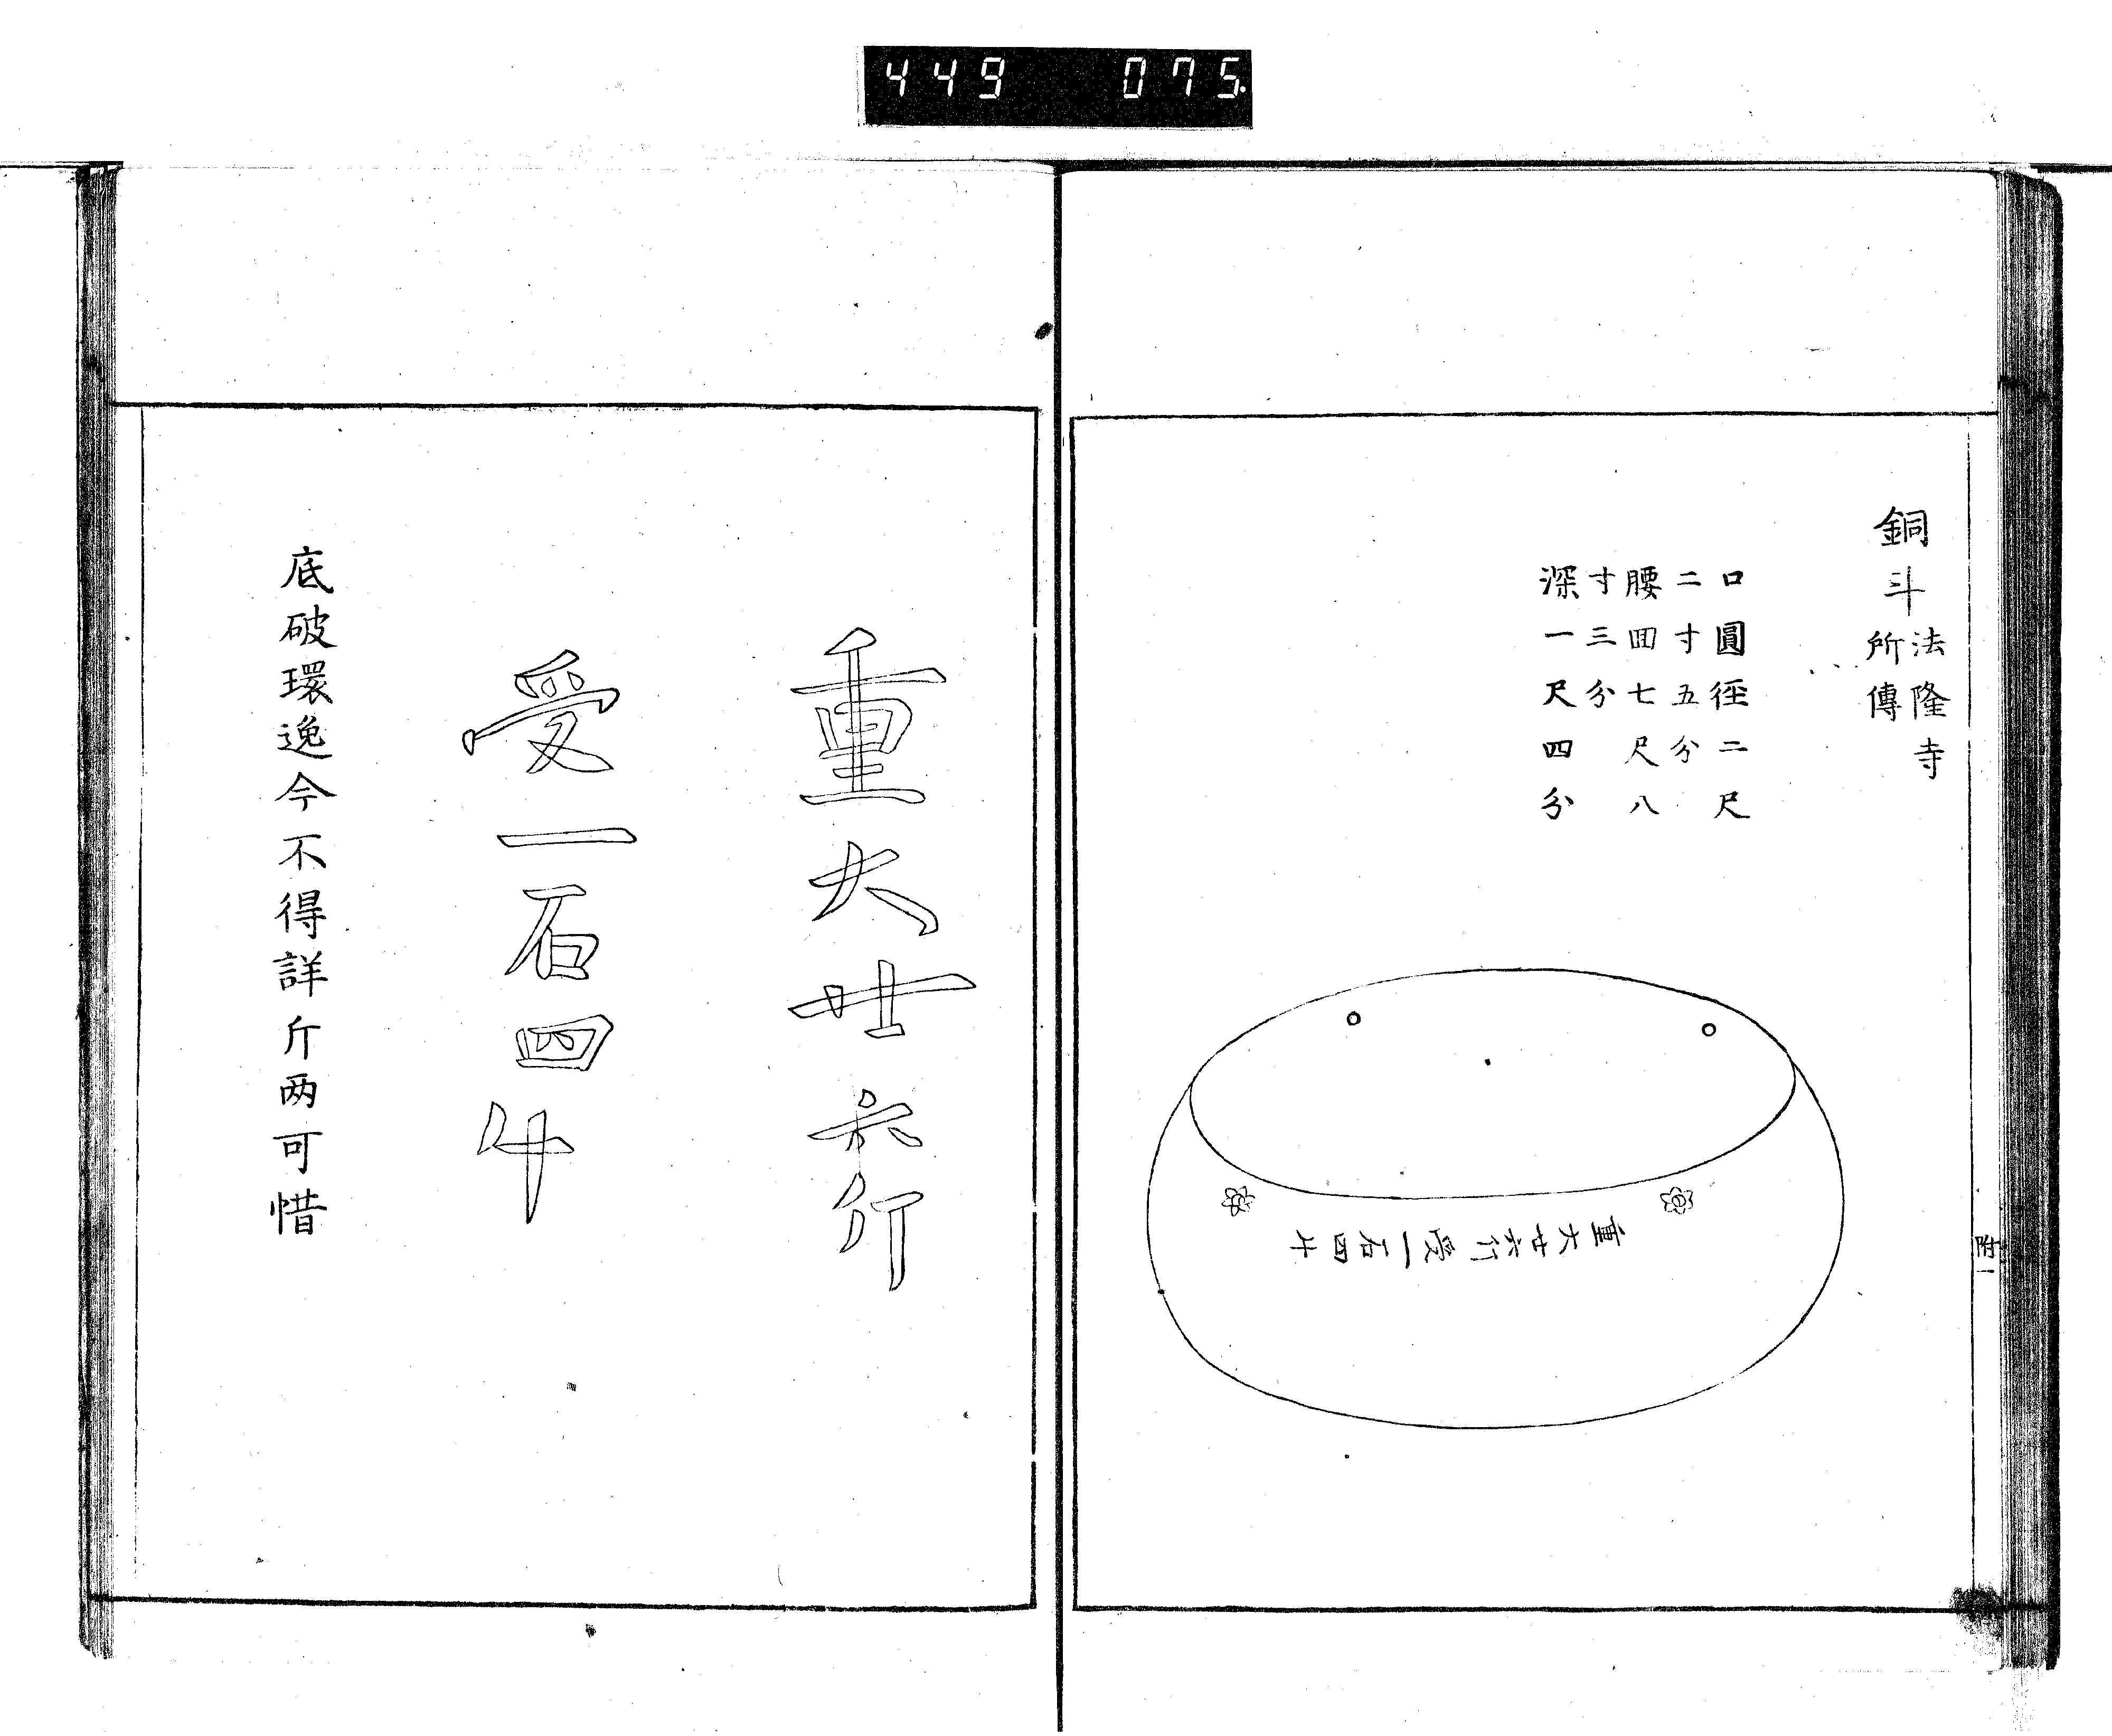 449 075
銅斗法隆寺
所傳
口圓徑二尺
二寸五分
腰囬七尺八
寸三分
深一尺四分
重大廿六斤受一石四升
重大廿六斤
受一石四升
底破環逸今不得詳斤两可惜